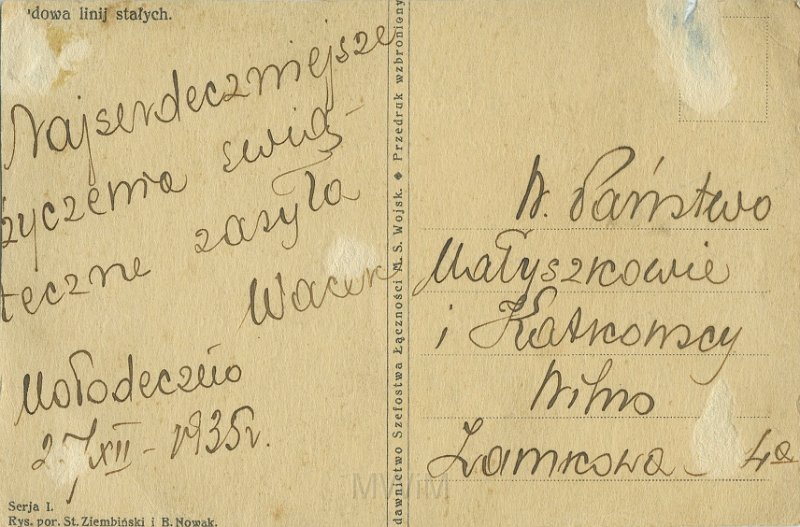 dowa linij stałych.
Najserdeczniejsze
życzenia świą-
teczne zasyła
Wacek
Mołodeczno
27/XII - 1935r.
Serja I.
Rys. por. St. Ziembiński i B. Nowak.
dawnictwo Szefostwa Łączności M. S. Wojsk. ◆ Przedruk wzbroniony
W. Państwo
Małyszkowie
i Katkowscy
Wilno
Zamkowa - 4a
MWiM